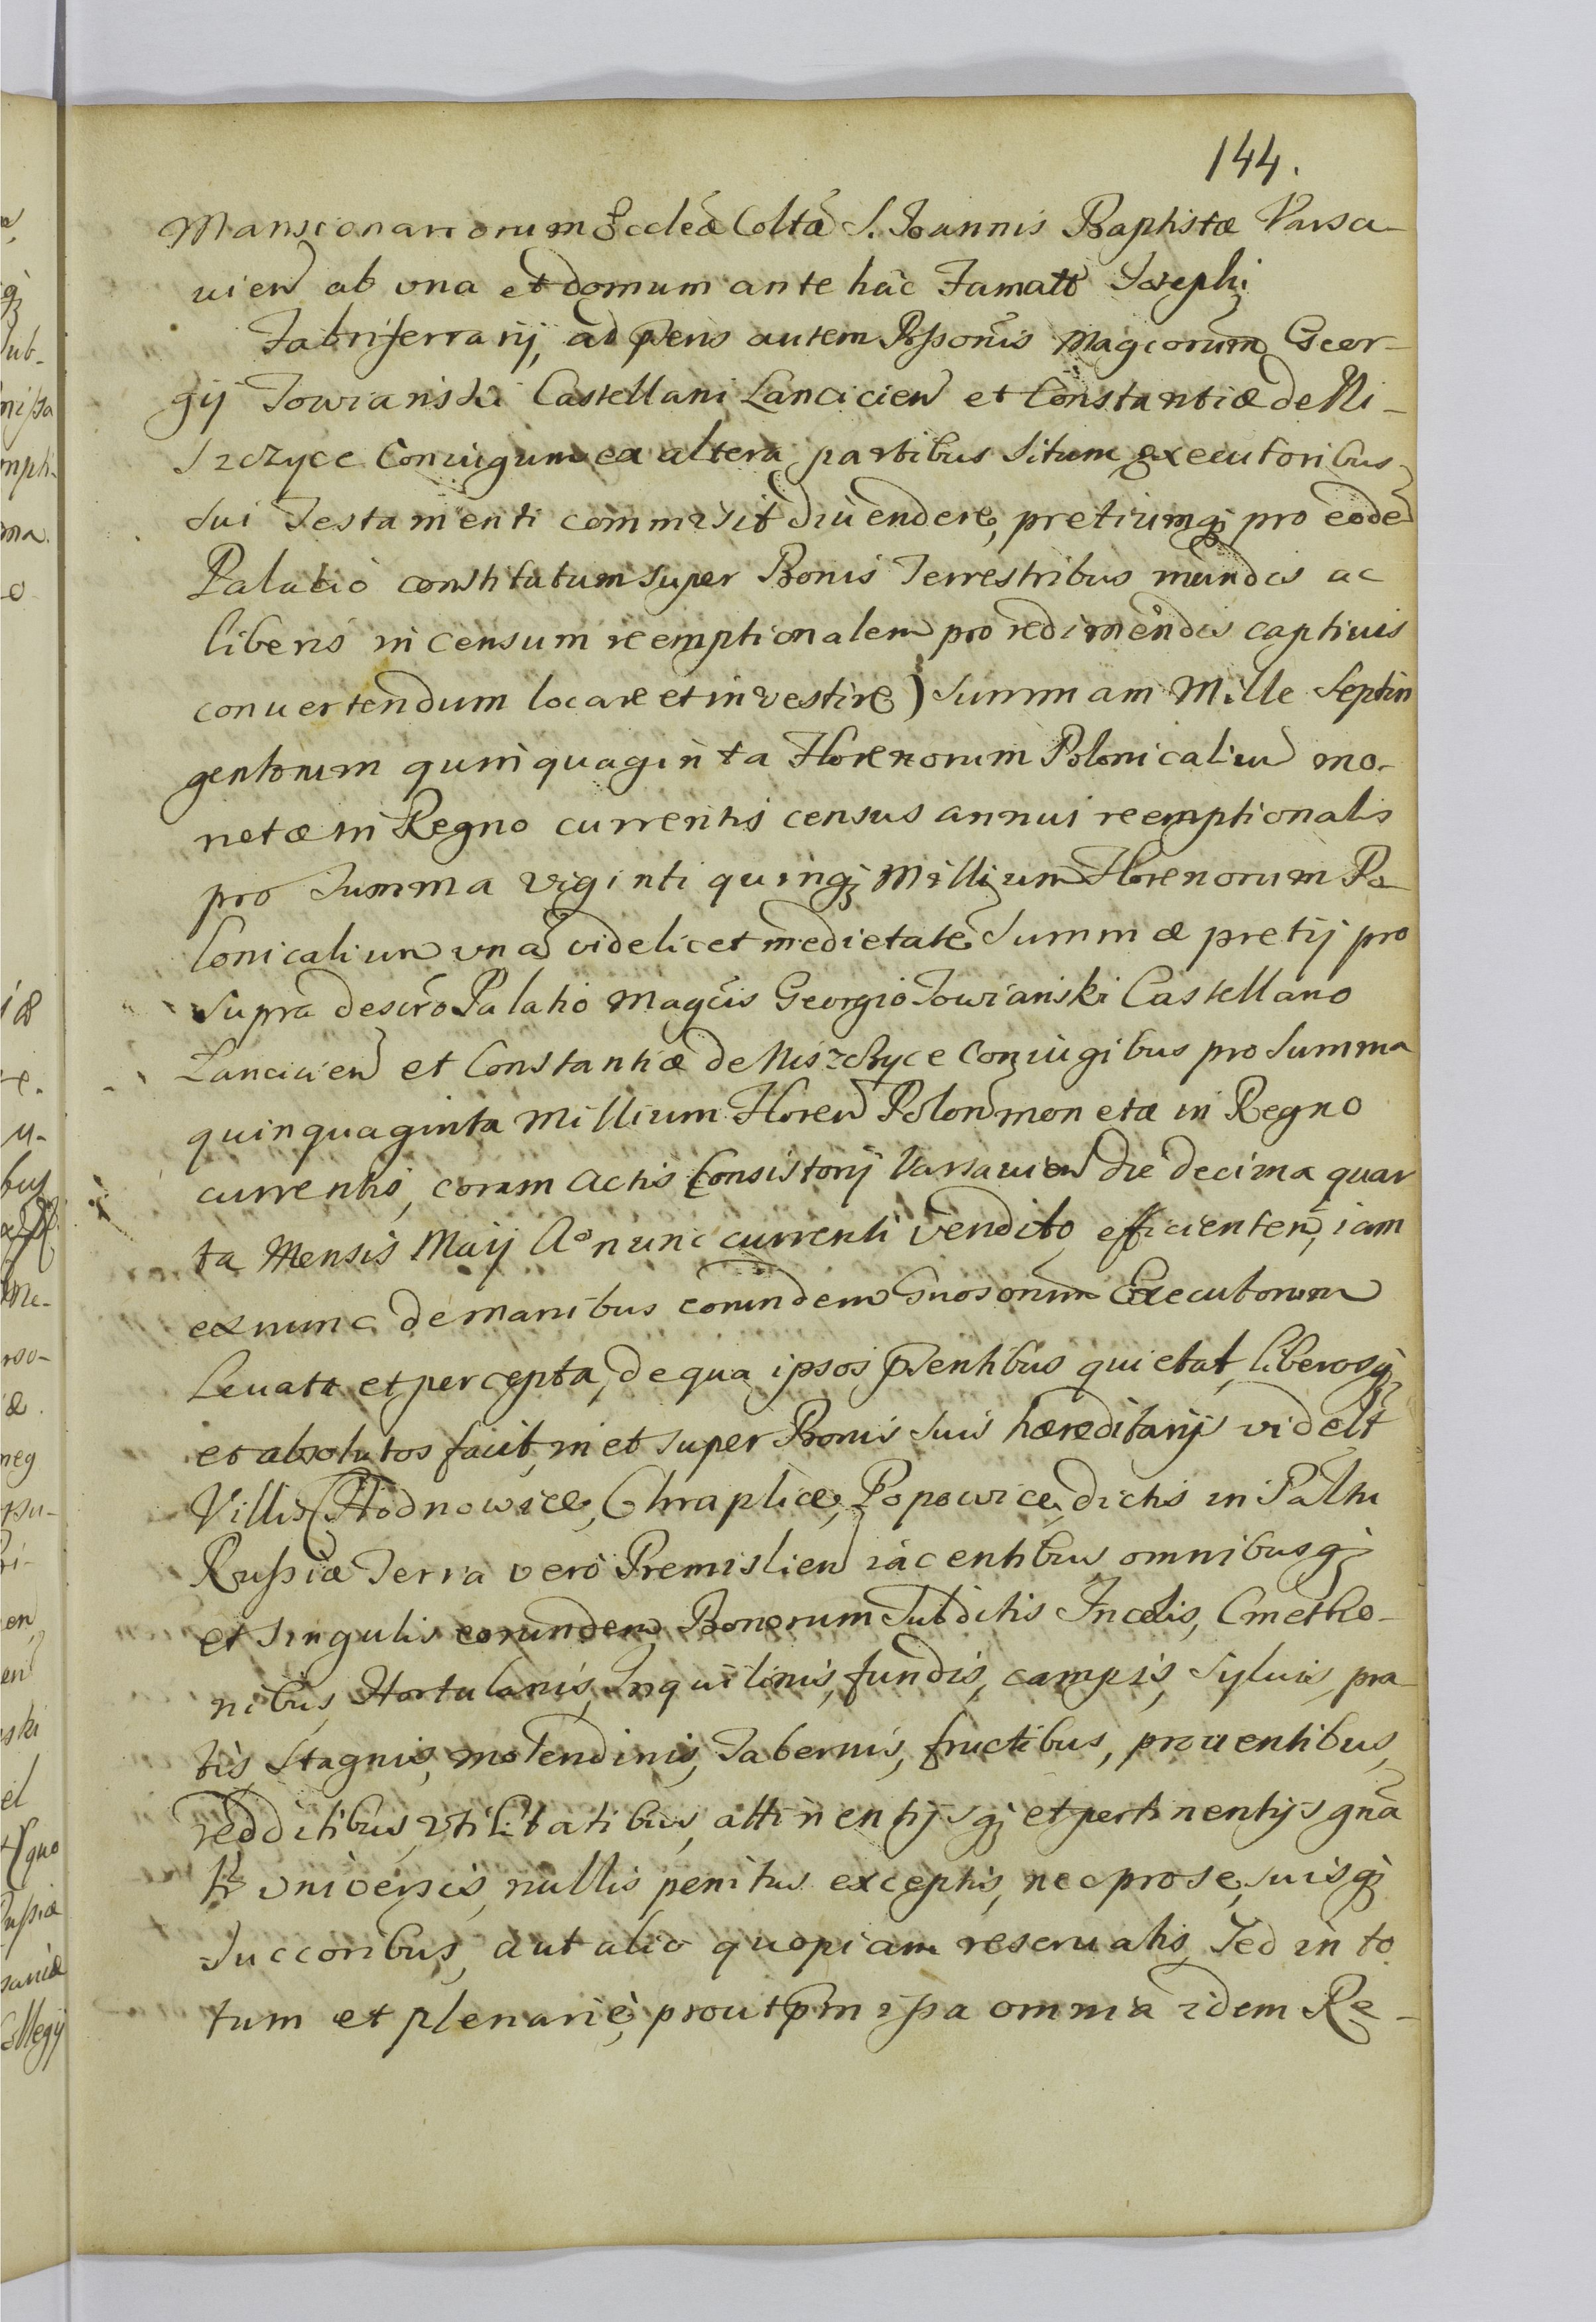 144.
Mansionariorum Eccleæ Coltæ S. Joannis Baptistæ Varsa-
uien ab vna et domum ante hac Famati Josephi
Fabriferrarij, ad p̃ens autem Poss̃onis Mag̃corum Geor-
gij Towianski Castellani Lancicien et Constantiæ de Ni-
szczyce Coniugum ex altera partibus Situm executoribus
sui Testamenti commisit diuendere, pretiumq; pro eode
Palatio constitutum super Bonis Terrestribus mundis ac
liberis in censum reemptionalem pro redimendis captiuis
conuertendum locare et investire) Summam Mille Septin
gentorum quinquaginta Florenorum Polonicaliu mo-
netæ in Regno currentis census annui reemptionalis
pro Summa viginti quinq; Millium Florenorum Po-
lonicalium vna videlicet medietate Summæ pretij pro
supra descr̃o Palatio Mag̃cis Georgio Towianski Castellano
Lancicien et Constantiæ de Niszczyce Coniugibus pro Summa
quinquaginta Millium Floren Polon monetæ in Regno
currentis, coram Actis Consistorij Varsauien die decima quar
ta Mensis Maij Aº nunc currenti vendito efficienten, iam
ex nunc de manibus eorundem Gnosorum Executorum
Leuata et percepta, de qua ipsos p̃sentibus quietat, liberosq;
et absolutos facit, in et super Bonis suis hæreditarijs videlt
Villis Hodnowice, Chraplice, Popowice, dictis in Paltu
Russiæ Terra vero Premislien iacentibus omnibusq;
et singulis eorundem Bonorum Subditis Incolis, Cmetho-
nibus, Hortulanis, Inquilinis, fundis, campis, syluis, pra-
tis Stagnis, molendinis, Tabernis, fructibus, prouentibus,
redditibus, vtilitatibus, attinentijsq; et pertinentijs gña
lr vniversis, nullis penitus exceptis, nec pro se, suisq;
Succoribus, aut alio quopiam reseruatis, Sed in to
tum et plenarie, prout p̃missa omnia idem Re-